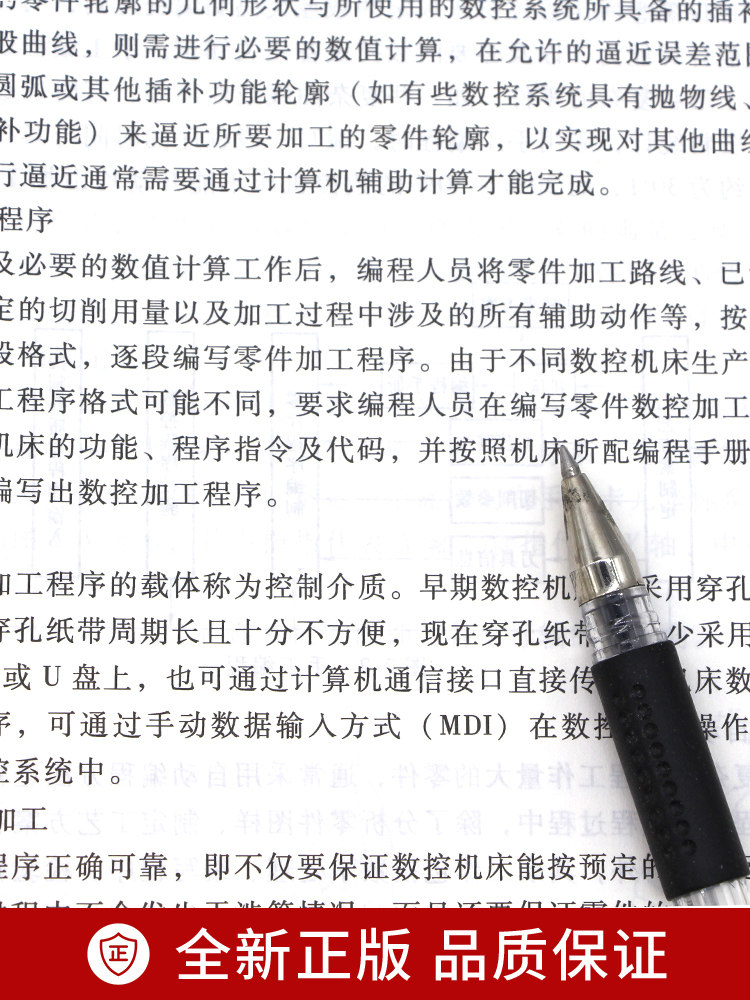 零件轮廓的几何形状与所使用的数控系统所具备的插补
股曲线，则需进行必要的数值计算，在允许的逼近误差范围
圆弧或其他插补功能轮廓（如有些数控系统具有抛物线、
补功能）来逼近所要加工的零件轮廓，以实现对其他曲线
行逼近通常需要通过计算机辅助计算才能完成。
程序
及必要的数值计算工作后，编程人员将零件加工路线、已
定的切削用量以及加工过程中涉及的所有辅助动作等，按
段格式，逐段编写零件加工程序。由于不同数控机床生产
工程序格式可能不同，要求编程人员在编写零件数控加工
机床的功能、程序指令及代码，并按照机床所配编程手册
编写出数控加工程序。
加工程序的载体称为控制介质。早期数控机 采用穿孔
穿孔纸带周期长且十分不方便，现在穿孔纸带 少采用
或 U 盘上，也可通过计算机通信接口直接传 床数
序，可通过手动数据输入方式（MDI）在数控 操作
控系统中。
加工
程序正确可靠，即不仅要保证数控机床能按预定的
正
全新正版 品质保证